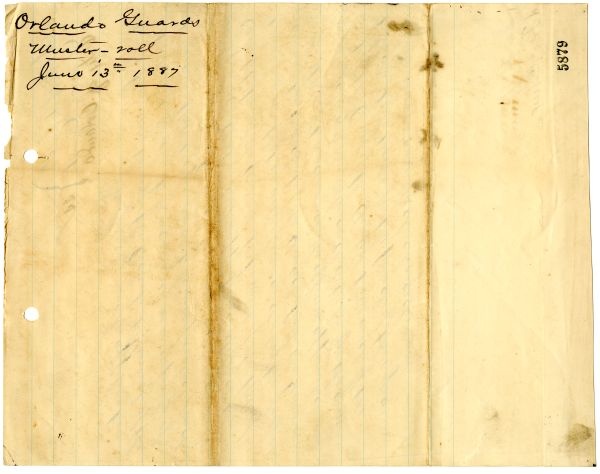 Orlando Guards
Muster-roll
June 13th 1887
5879